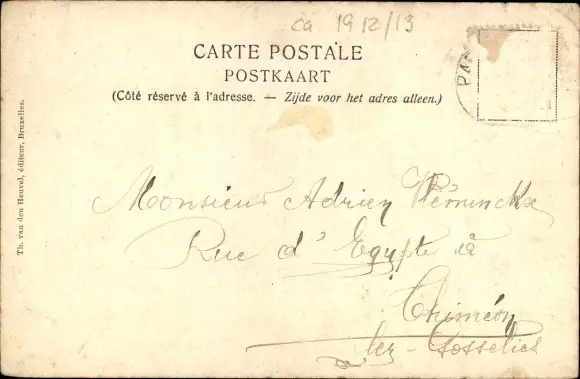 ca 1912/13
CARTE POSTALE
POSTKAART
(Côté réservé à l'adresse. — Zijde voor het adres alleen.)
Th. van den Heuvel, éditeur, Bruxelles.
Monsieur Adrien
Rue d'Egypte à
Thiméon
lez-Gosselies